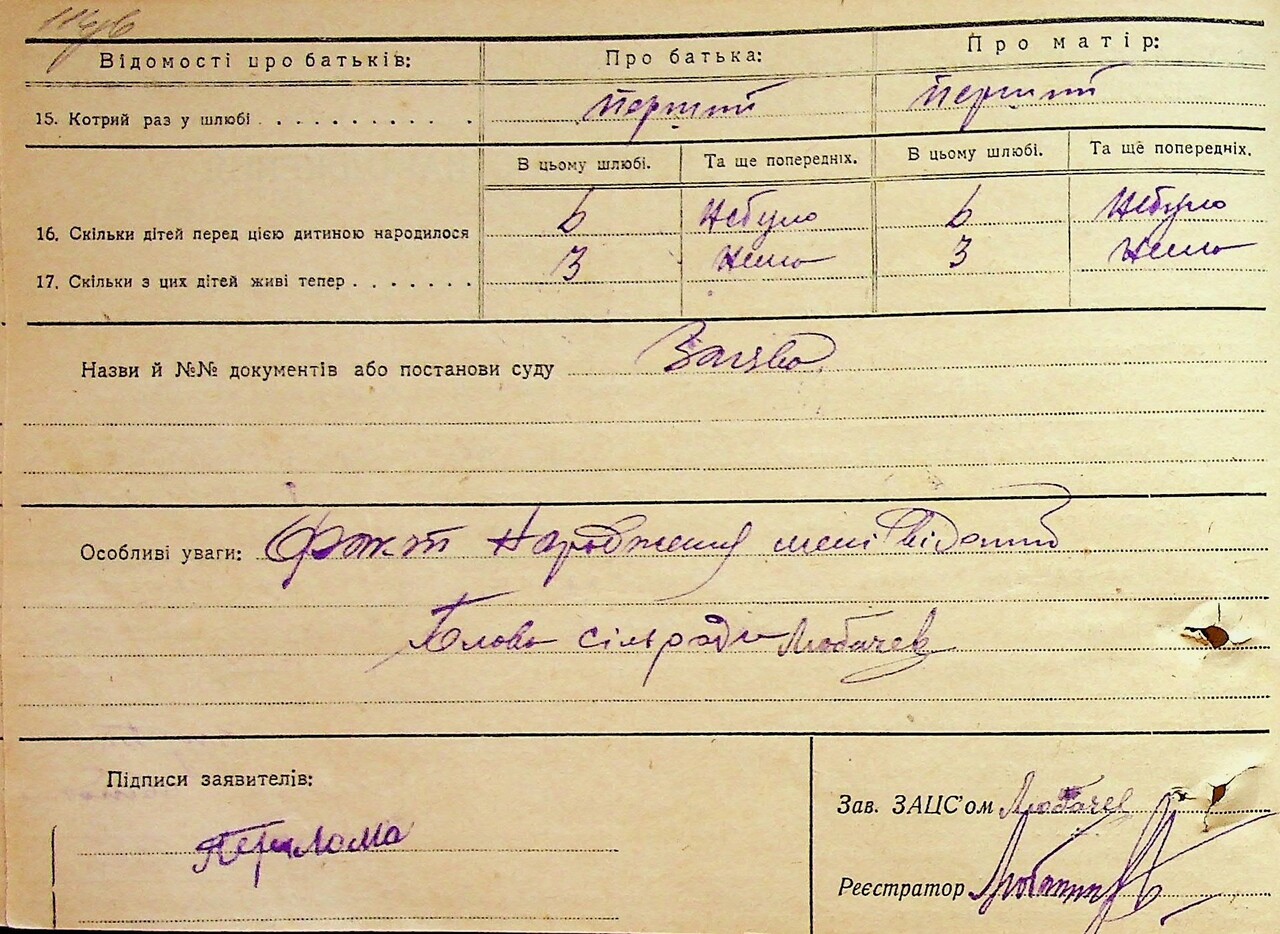 Відомості про батьків: Про батька: Про матір:
15. Котрий раз у шлюбі . . . . . . . . . . . перший перший
В цьому шлюбі. Та ще попередніх. В цьому шлюбі. Та ще попередніх.
16. Скільки дітей перед цією дитиною народилося 6 небуло 6 небуло
17. Скільки з цих дітей живі тепер . . . . . . . 3 нема 3 нема
Назви й №№ документів або постанови суду
Особливі уваги: Факт народження мені відомий
Голова сільради Любачев
Підписи заявителів:
Зав. ЗАЦС'ом Любачев
Реєстратор